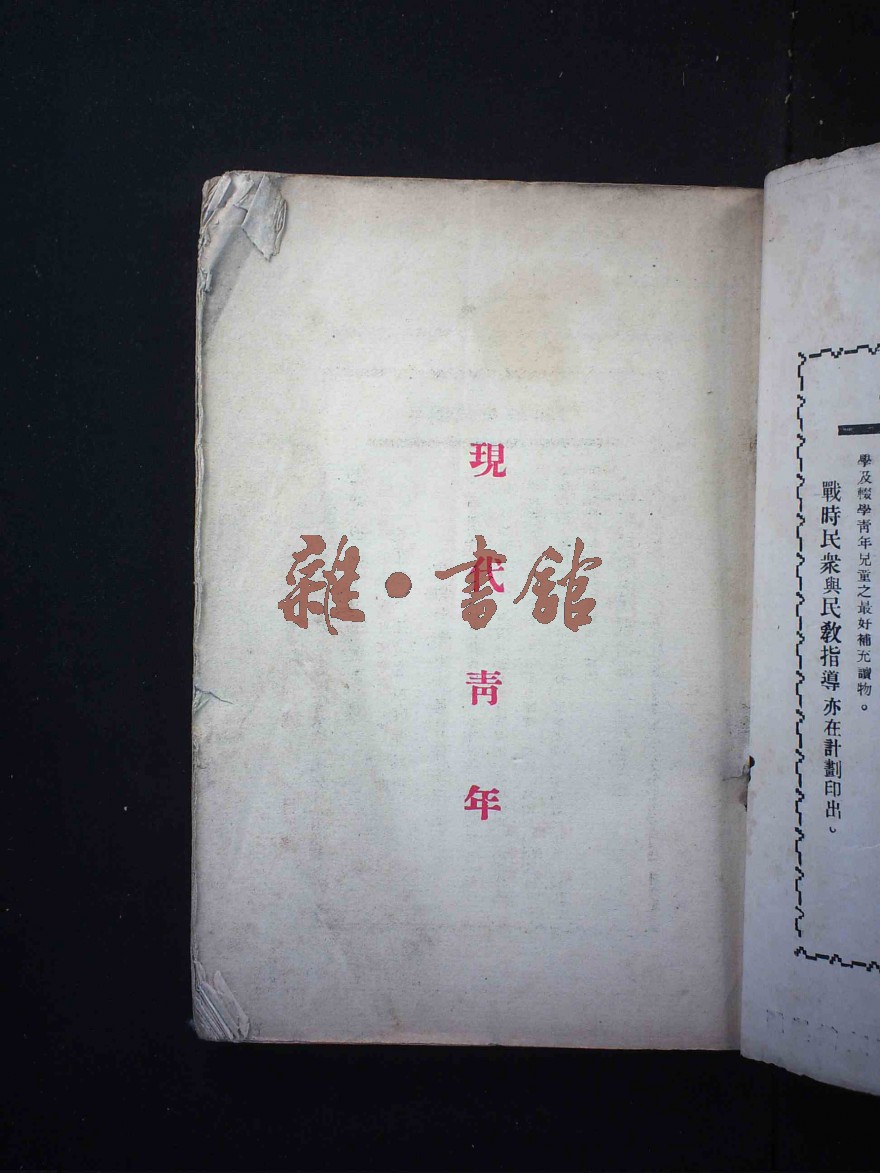 現代青年
雜·書館
學及輟學青年兒童之最好補充讀物。
戰時民衆與民敎指導亦在計劃印出。